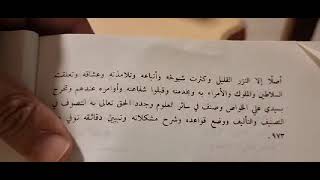 أصلًا إلا النزر القليل وكثرت شيوخه وأتباعه وتلامذته وعشاقه وتعلقت
السلاطين والملوك والأمراء به وبخدمته وقبلوا شفاعته وأوامره عندهم وتخرج
بسيدي علي الخواص وصنف في سائر العلوم وجدد الحق تعالى به التصوف في
التصنيف والتأليف ووضع قواعده وشرح مشكلاته وتبيين دقائقه توفي
٩٧٣.